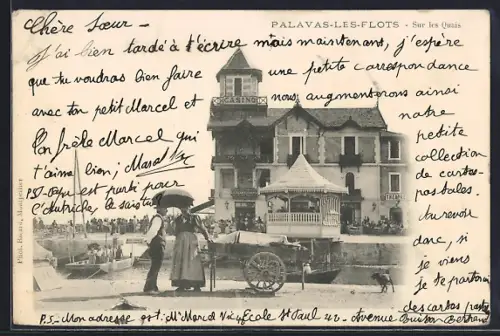 PALAVAS-LES-FLOTS - Sur les Quais
Chère Sœur -
J'ai bien tardé à t'écrire mais maintenant, j'espère
que tu voudras bien faire une petite correspondance
avec ton petit Marcel et nous augmenterons ainsi
notre
petite
collection
de cartes-
postales.
Au revoir
donc, si
je viens
je te porterai
des cartes post
Ton frère Marcel qui
t'aime bien; Marcel
P.S.- est parti pour
l'Autriche, le sais-tu
CASINO
Phot. Bacard, Montpellier
P.S.- Mon adresse est: Mr Marcel École St Paul 42 - Avenue Buisson Bertrand